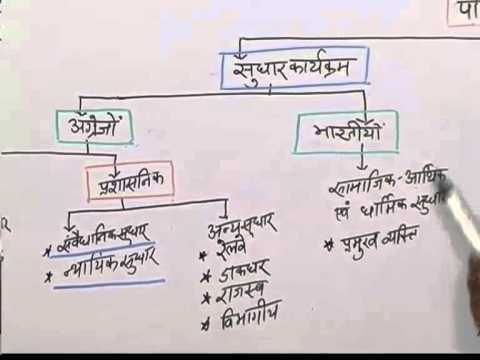 सुधार कार्यक्रम
अंग्रेजों
भारतीयों
प्रशासनिक
सामाजिक - आर्थिक
एवं धार्मिक सुधार
* प्रमुख व्यक्ति
* संवैधानिक सुधार
* न्यायिक सुधार
अन्य सुधार
* रेलवे
* डाकघर
* राजस्व
* विभागीय